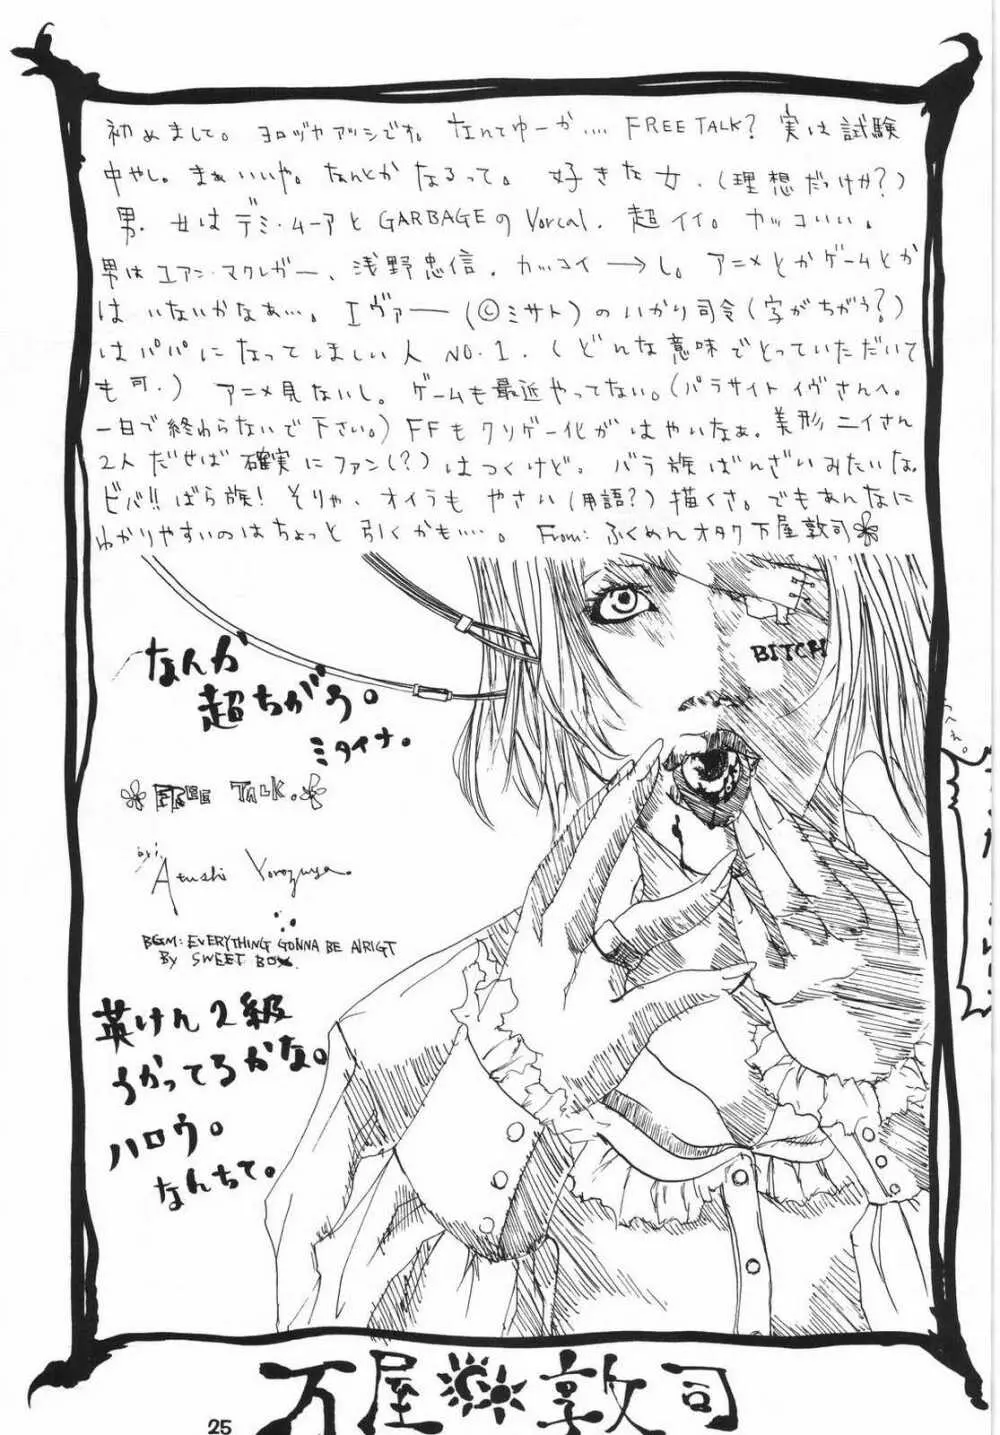 初めまして。ヨロヅヤアツシです。なんてゆーか.... FREE TALK? 実は試験
中やし。まぁいいや。なんとかなるって。好きな女.(理想だっけか?)
男. 女はデミ・ムーアとGARBAGEのVorcal. 超イイ。カッコいい。
男はユアン・マクレガー、浅野忠信. カッコイ→し。アニメとかゲームとか
はいないかなぁ...。エヴァー(©ミサト)のいかり司令(字がちがう?)
はパパになってほしい人NO.1.(どんな意味でとっていただいて
も可.) アニメ見ないし。ゲームも最近やってない。(パラサイトイヴさんへ。
一日で終わらないで下さい。)FFもクリゲー化がはやいなぁ。美形ニイさん
2人だせば確実にファン(?)はつくけど。バラ族ばんざいみたいな。
ビバ!!ばら族! そりゃ、オイラもやさい(用語?)描くさ。でもあんなに
わかりやすいのはちょっと引くかも....。From: ふくめんオタク万屋敦司
BITCH
なんか
超ちがう。
ミタイナ。
FREE TALK.
by.
Atushi Yorozuya.
BGM: EVERYTHING GONNA BE ALRIGT
BY SWEET BOX.
英けん2級
うかってるかな。
ハロウ。
なんちて。
万屋敦司
25